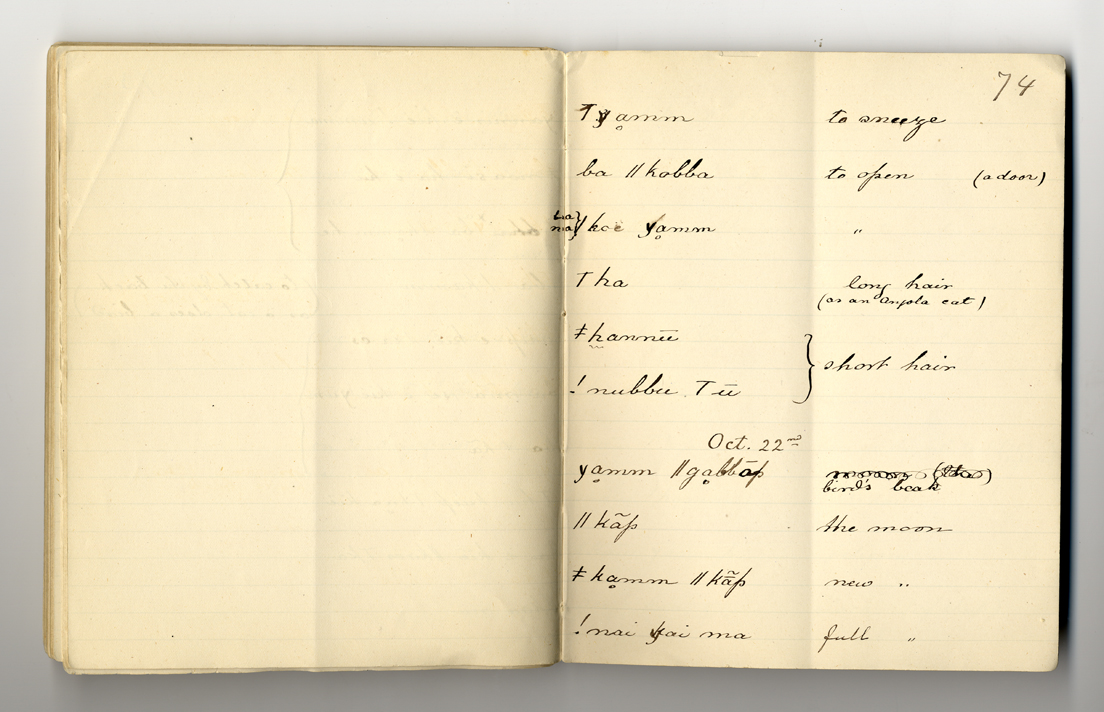 74
T y̥amm to sneeze
ba ǁkobba to open (a door)
ba
ma} ǀkoë y̥amm "
T ha long hair
(as an Angola cat)
ǂhannū
} short hair
!nubbu Tū
Oct. 22nd
yḁmm ǁgḁbbāp
bird's beak
ǁkã̄p the moon
ǂkḁmm ǁkã̄p new "
!nai yai ma full "